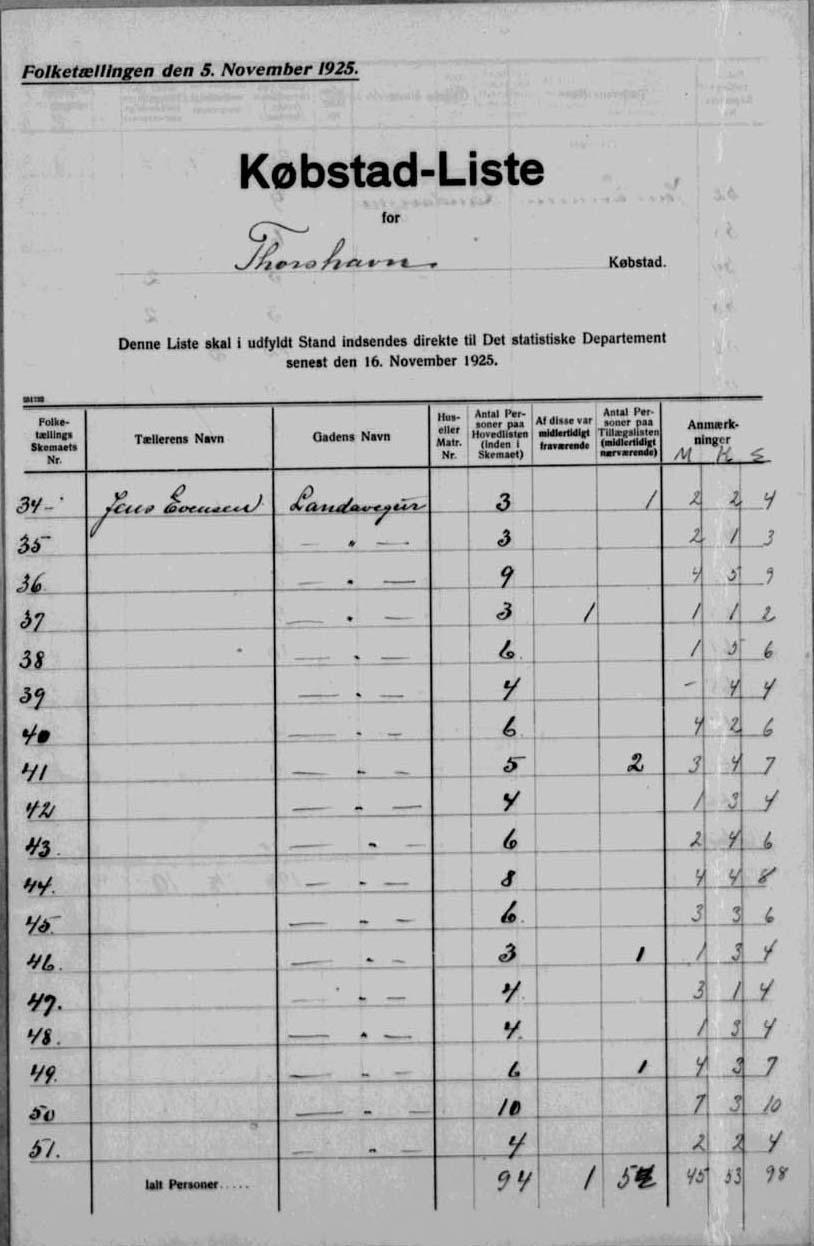 Folketællingen den 5. November 1925.
Købstad-Liste
for
Thorshavn. Købstad.
Denne Liste skal i udfyldt Stand indsendes direkte til Det statistiske Departement
senest den 16. November 1925.
Folketællings Skemaets Nr. | Tællerens Navn | Gadens Navn | Hus- eller Matr. Nr. | Antal Personer paa Hovedlisten (inden i Skemaet) | Af disse var midlertidigt fraværende | Antal Personer paa Tillægslisten (midlertidigt nærværende) | Anmærkninger M K S
34 - Jens Evensen Landavegur 3 1 2 2 4
35 — " — 3 2 1 3
36 — " — 9 4 5 9
37 — " — 3 1 1 1 2
38 — " — 6 1 5 6
39 — " — 4 - 4 4
40 — " — 6 4 2 6
41 — " — 5 2 3 4 7
42 — " — 4 1 3 4
43. — " — 6 2 4 6
44. — " — 8 4 4 8
45. — " — 6 3 3 6
46. — " — 3 1 1 3 4
47. — " — 4 3 1 4
48. — " — 4 1 3 4
49. — " — 6 1 4 3 7
50 — " — 10 7 3 10
51. — " — 4 2 2 4
Ialt Personer..... 94 1 5 45 53 98